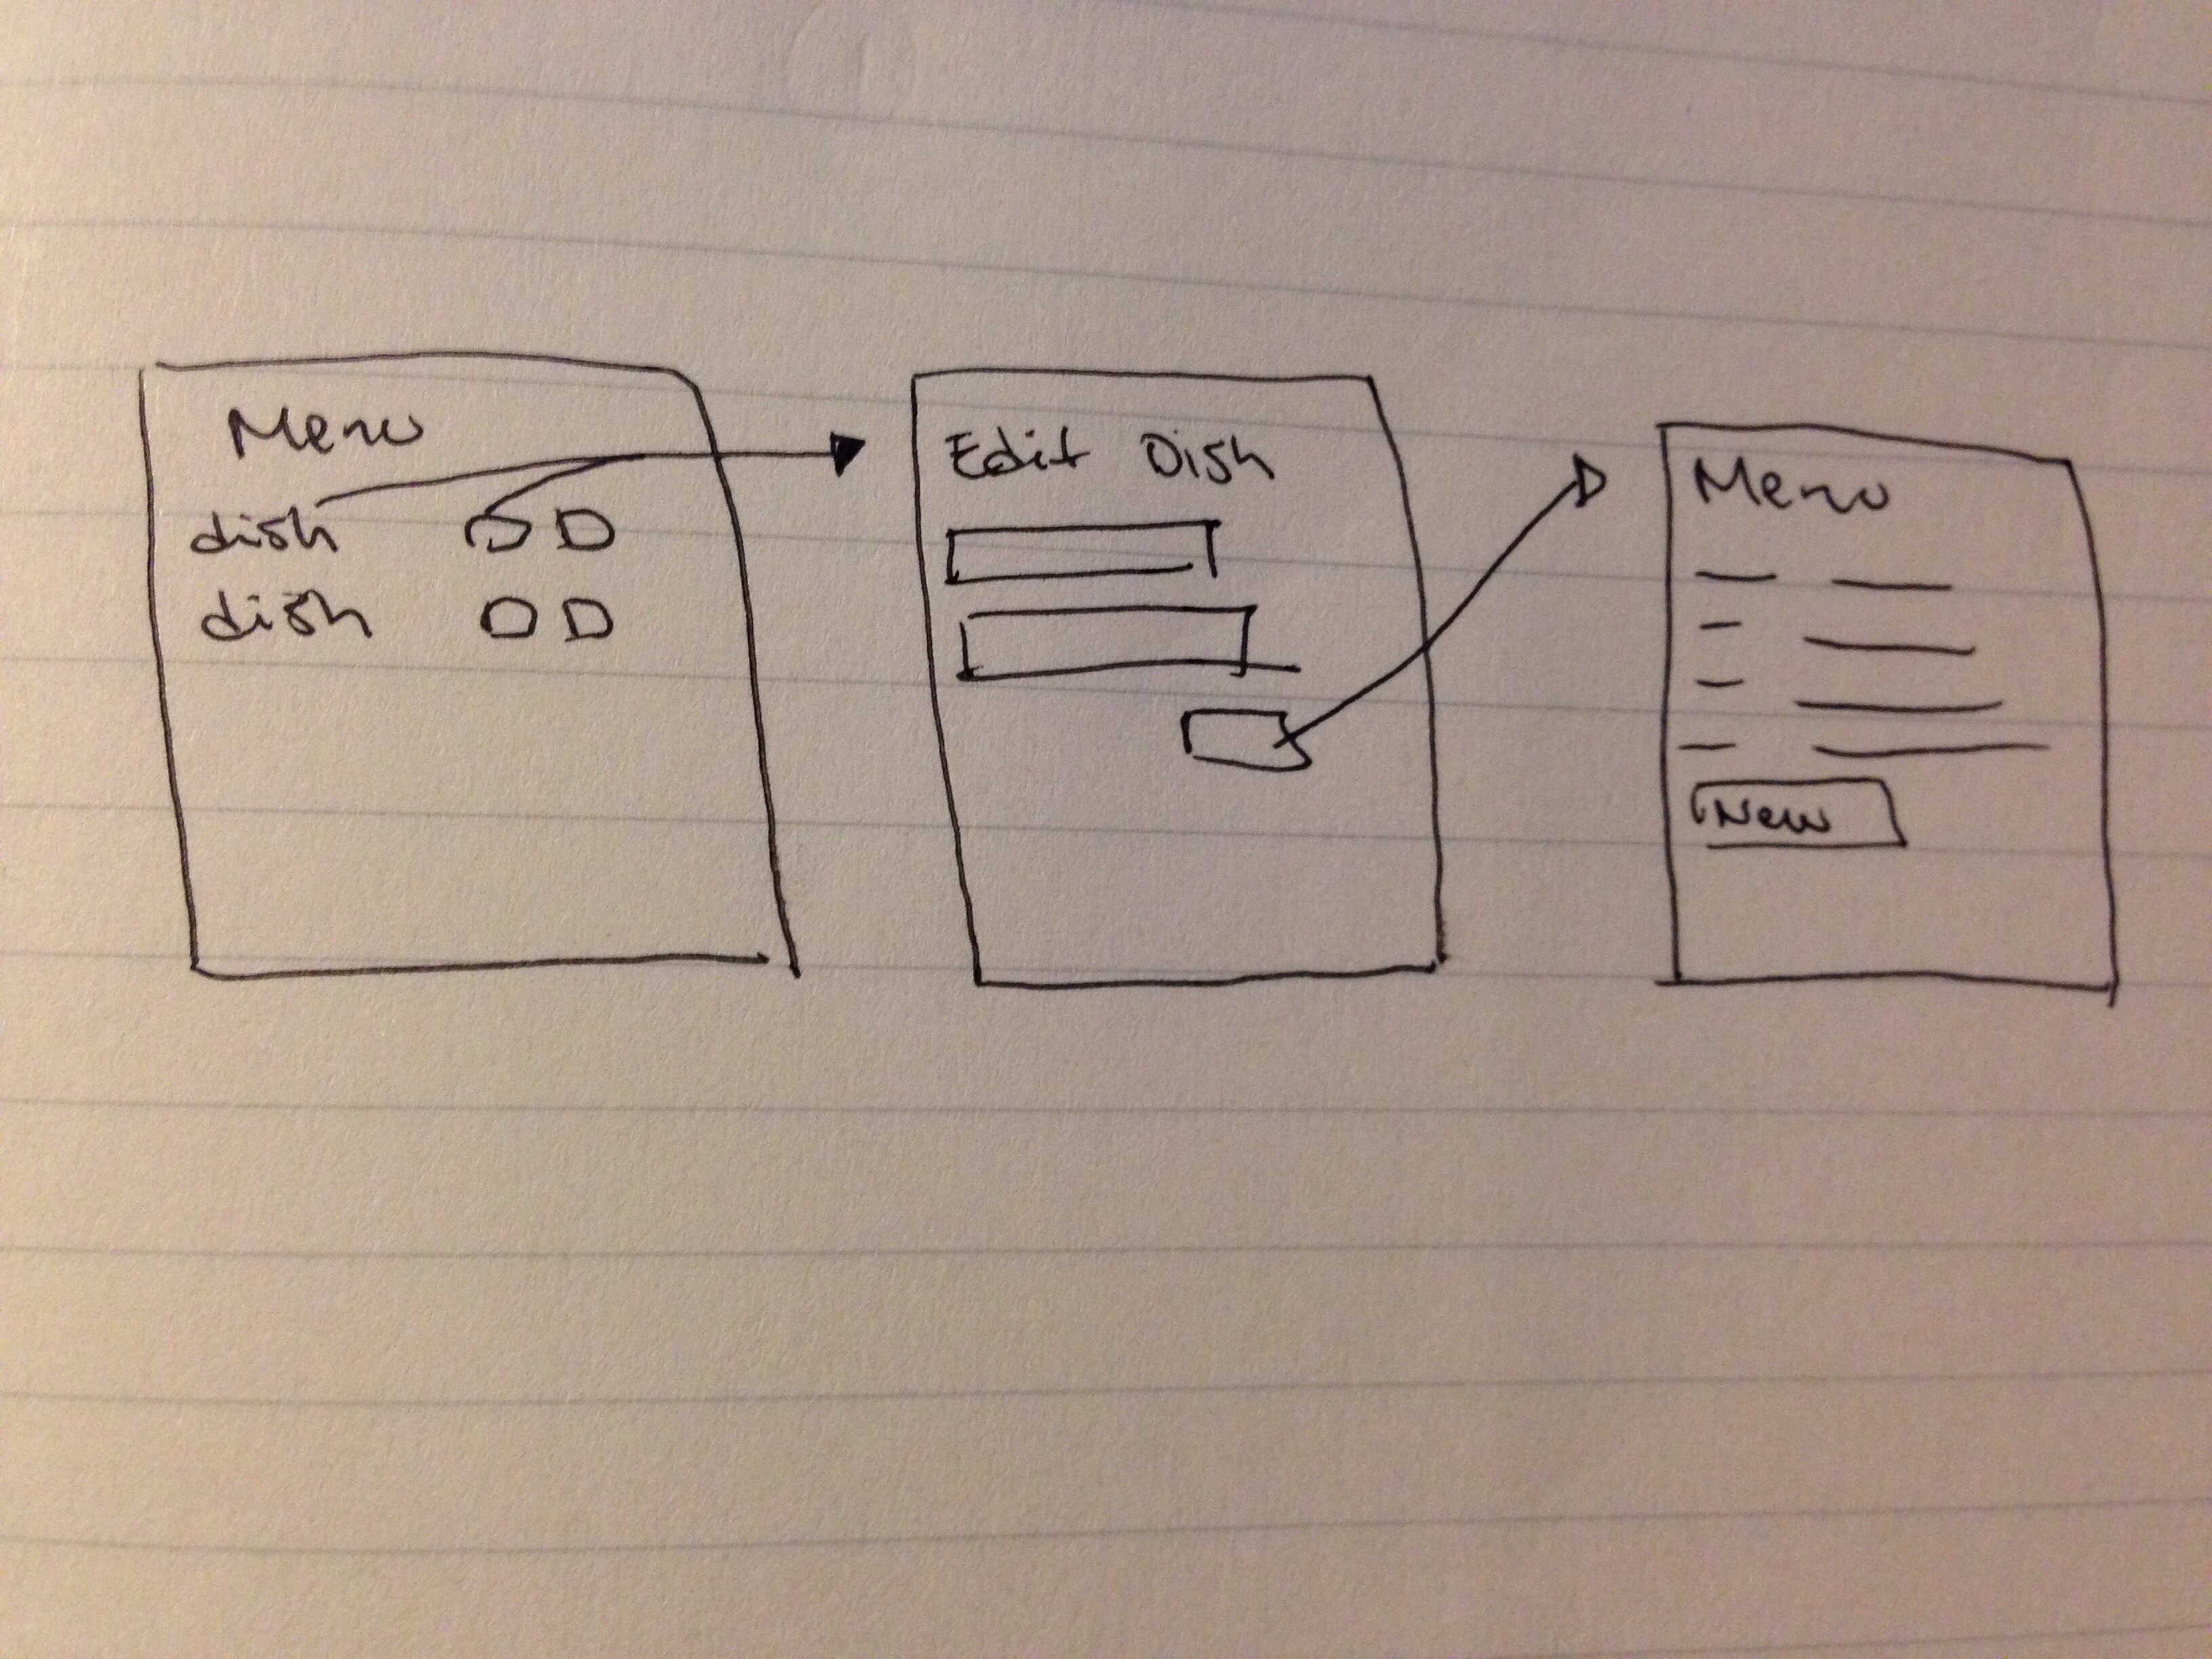 Menu
dish
dish
Edit Dish
Menu
New